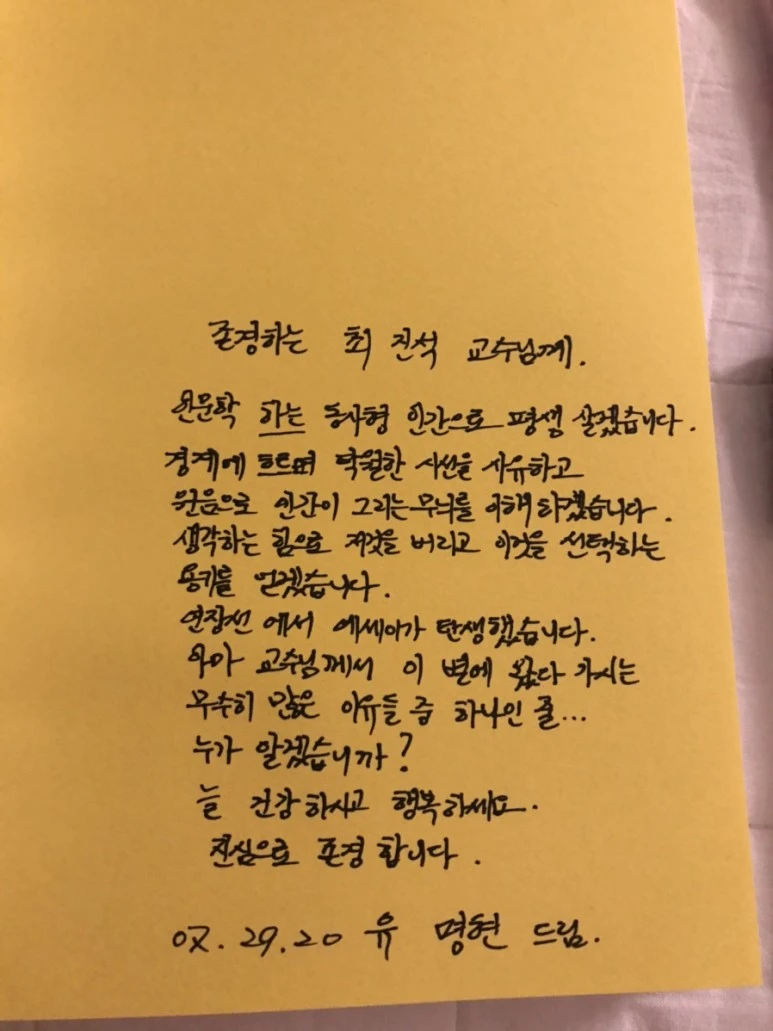 존경하는 최 진석 교수님께.
인문학 하는 동사형 인간으로 평생 살겠습니다.
경계에 흐르며 탁월한 시선을 사유하고
믿음으로 인간이 그리는 무늬를 이해 하겠습니다.
생각하는 힘으로 저것을 버리고 이것을 선택하는
용기를 얻겠습니다.
연장선 에서 에세이가 탄생했습니다.
아마 교수님께서 이 별에 왔다 가시는
무수히 많은 이유들 중 하나인 줄...
누가 알겠습니까?
늘 건강하시고 행복하세요.
진심으로 존경 합니다.
07. 29. 20 유 명현 드림.